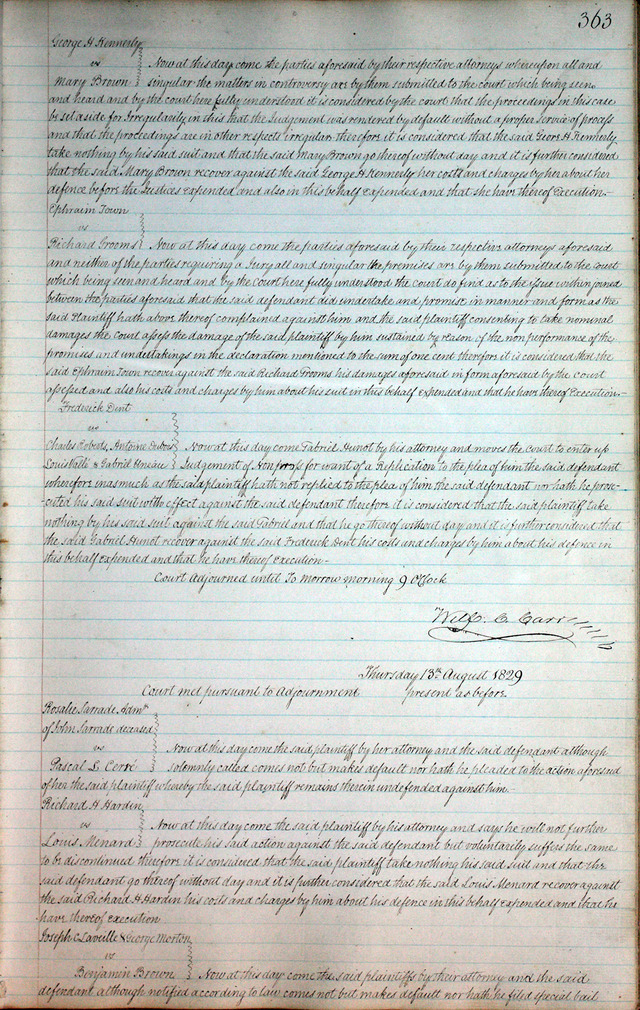 363
George H Kennerly
vs Now at this day come the parties aforesaid by their respective attorneys whereupon all and
Mary Brown singular the matters in controversy are by them submitted to the court which being seen
and heard and by the court here fully understood it is considered by the court that the proceedings in this case
be set aside for Irregularity in this that the Judgement was rendered by default without a proper service of process
and that the proceedings are in other respects irregular therefore it is considered that the said Geors. H. Kennerly
take nothing by his said suit and that the said Mary Brown go thereof without day and it is further considered
that the said Mary Brown recover against the said George H Kennerly her costs and charges by her about her
defence before the Justices expended and also in this behalf expended and that she have thereof Execution–
Ephraim Town
vs
Richard Grooms Now at this day come the parties aforesaid by their respective attorneys aforesaid
and neither of the parties requiring a Jury all and singular the premises are by them submitted to the court
which being seen and heard and by the Court here fully understood the court do find as to the issue within joined
between the parties aforesaid that the said defendant did undertake and promise in manner and form as the
said Plaintiff hath above thereof complained against him and the said plaintiff consenting to take nominal
damages the Court assess the damage of the said plaintiff by him sustained by reason of the non performance of the
promises and undertakings in the declaration mentioned to the sum of one cent therefore it is considered that the
said Ephraim Town recover against the said Richard Grooms his damages aforesaid in form aforesaid by the court
assessed and also his costs and charges by him about his suit in this behalf expended and that he have thereof Execution–
Frederick Dent
vs
Charles Antoine Dubois Now at this day come Gabriel Hunot by his attorney and moves the Court to enter up
Louis Vallé & Gabriel Judgement of Non pross for want of a Replication to the plea of him the said defendant
wherefore inasmuch as the said plaintiff hath not replied to the plea of him the said defendant nor hath he prose-
cuted his said suit with effect against the said defendant therefore it is considered that the said plaintiff take
nothing by his said suit against the said Gabriel and that he go thereof without day and it is further considered that
the said Gabriel Hunot recover against the said Frederick Dent his costs and charges by him about his defence in
this behalf expended and that he have thereof execution–
Court Adjourned until To Morrow morning 9 O'Clock
Will. C. Carr
Thursday 13th August 1829
Court met pursuant to Adjournment present as before
Rosalie Sarrade Admx
of John Sarrade deceased
vs Now at this day come the said plaintiff by her attorney and the said defendant although
Pascal L. Cerré solemnly called comes not but makes default nor hath he pleaded to the action aforesaid
of her the said plaintiff whereby the said plaintiff remains therein undefended against him.
Richard H Harden
vs Now at this day come the said plaintiff by his attorney and says he will not further
Louis Menard prosecute his said action against the said defendant but voluntarily suffers the same
to be discontinued therefore it is considered that the said plaintiff take nothing his said suit and that the
said defendant go thereof without day and it is further considered that the said Louis Menard recover against
the said Richard H Hardin his costs and charges by him about his defence in this behalf expended and that he
have thereof execution
Joseph C Laveille & George Morton
vs
Benjamin Brown Now at this day come the said plaintiffs by their attorney and the said
defendant although notified according to law comes not but makes default nor hath he filed special bail